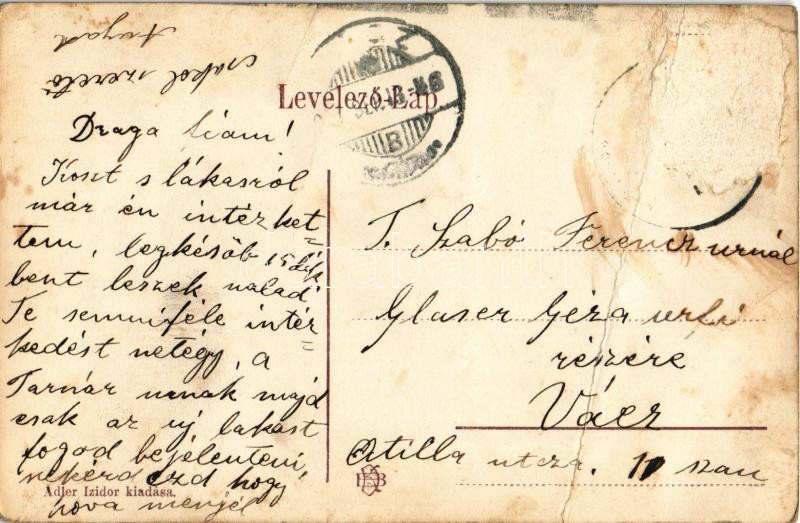 Anyád
csakol szerető
Levelező-Lap.
B
Draga fiam!
Koszt s lákasról
már én intézket=
tem, legkésöb 15
bent leszek nalad
Te semmiféle intéz=
kedést netégy, a
Tarnár nenak majd
csak az uj lakast
fogod bejelenteni,
nekérdezd hogy
hova menjél
Adler Izidor kiadása.
T. Szabó Ferencz urnál
Glaser Géza urfi
részére
Vácz
Attilla utcza. 10 szam